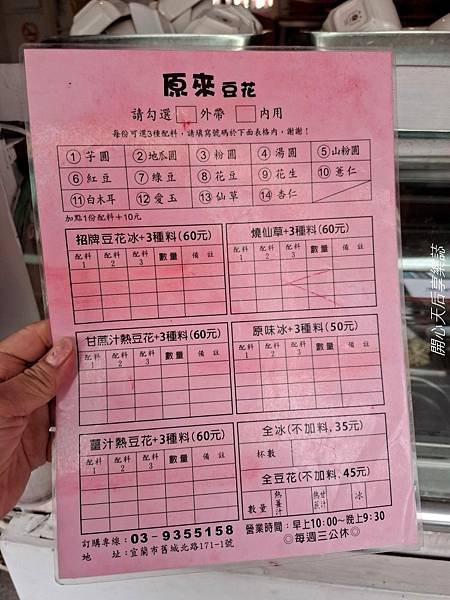 原來豆花
請勾選 外帶 內用
每份可選3種配料，請填寫號碼於下面表格內，謝謝！
①芋圓 ②地瓜圓 ③粉圓 ④湯圓 ⑤山粉圓
⑥紅豆 ⑦綠豆 ⑧花豆 ⑨花生 ⑩薏仁
⑪白木耳 ⑫愛玉 ⑬仙草 ⑭杏仁
加點1份配料+10元
招牌豆花冰+3種料(60元)
配料1 配料2 配料3 數量 備註
燒仙草+3種料(60元)
配料1 配料2 配料3 數量 備註
甘蔗汁熱豆花+3種料(60元)
配料1 配料2 配料3 數量 備註
原味冰+3種料(50元)
配料1 配料2 配料3 數量 備註
薑汁熱豆花+3種料(60元)
配料1 配料2 配料3 數量 備註
全冰(不加料,35元)
杯數
全豆花(不加料,45元)
數量 熱薑汁 熱甘蔗汁 冰
訂購專線：03-9355158
地 址：宜蘭市舊城北路171-1號
營業時間：早上10:00～晚上9:30
◎每週三公休◎
開心天后享樂誌